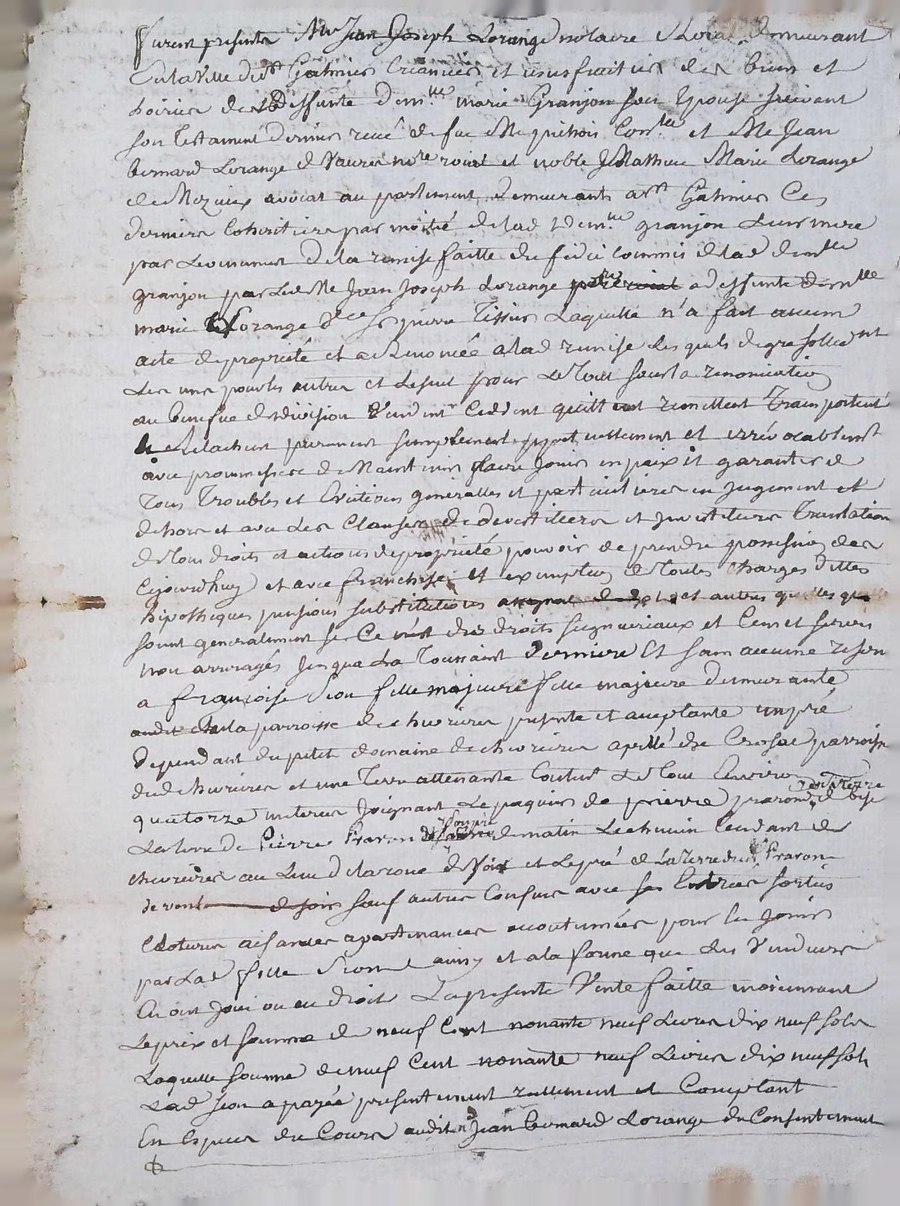 furent presents Me Jean Joseph Lorange notaire Royal demeurant
en la ville de St Galmier Creancier et usufruitier des biens et
hoirie de deffunte demlle marie Granjon son Epouse suivant
son Testament dernier receu de feu Me pichois Conre et Me Jean
bernard Lorange de Vaurea nore roial et noble Mathieu Marie Lorange
de Mezieux avocat au parlement demeurants a St Galmier Ces
derniers Coheritiers par moitié de lad demlle granjon Leur mere
par Le moien de la remise faitte du fideicommis de lad demlle
granjon par Led Me Jean Joseph Lorange a deffunte demlle
marie Lorange Sr pierre Tissier Laquelle n'a fait aucun
acte de propriété et a renoncée a lad remise Les quels de gre sollient
Les uns pour les autres et Le seul pour Le tout sous la renonciation
au benefice de division Vendent Cedent quittent remettent Transportent
et Relachent purement simplement perpetuellement et irrévocablement
avec promesse de Maintenir faire Jouir en paix et garantir de
Tous Troubles et Evictions generalles et particulieres en Jugement et
dehors et avec Les Clauses de devestiture et Investiture Translation
de tous droits et actions de propriété pouvoir de prendre possession des
Ejourdhuy et avec franchise et exemption de toutes Charges dettes
hipotheques pensions substitutions et autres quelles que
soient generalement si Ce n'est des droits seigneuriaux et Cens et servis
non arreragés Jusqua La Toussaint derniere Et sans aucune reserve
a francoise Sion fille majeure fille majeure demeurante
audit la parroisse de chevrieres presente et acceptante un pré
dependant du petit domaine de chevrieres apellé de Crossac parroisse
dud chevrieres et une Terre attenante Contenant Le tout Environ
quatorze meterées Joignant Le paquier de pierre praron de bise
La terre de Pierre Praron de matin Le chemin tendant de
chevrieres au Lieu de la roue de soir et Le pré de La Terre dud Praron
de vent sauf autres Confins avec ses Entrées sorties
Clotures aisances apartenances accoutumées pour En Jouir
par Lad fille Sion ainsy et a la forme que Les Vendeurs
En ont Joui ou eu droit La presente Vente faitte moiennant
Le prix et somme de neuf Cent nonante neuf Livres dix neuf sols
Laquelle somme de neuf Cent nonante neuf Livres dix neuf sols
Lad Sion a payée presentement reellement et Comptant
En Especes du Cours audit Me Jean bernard Lorange du Consentement